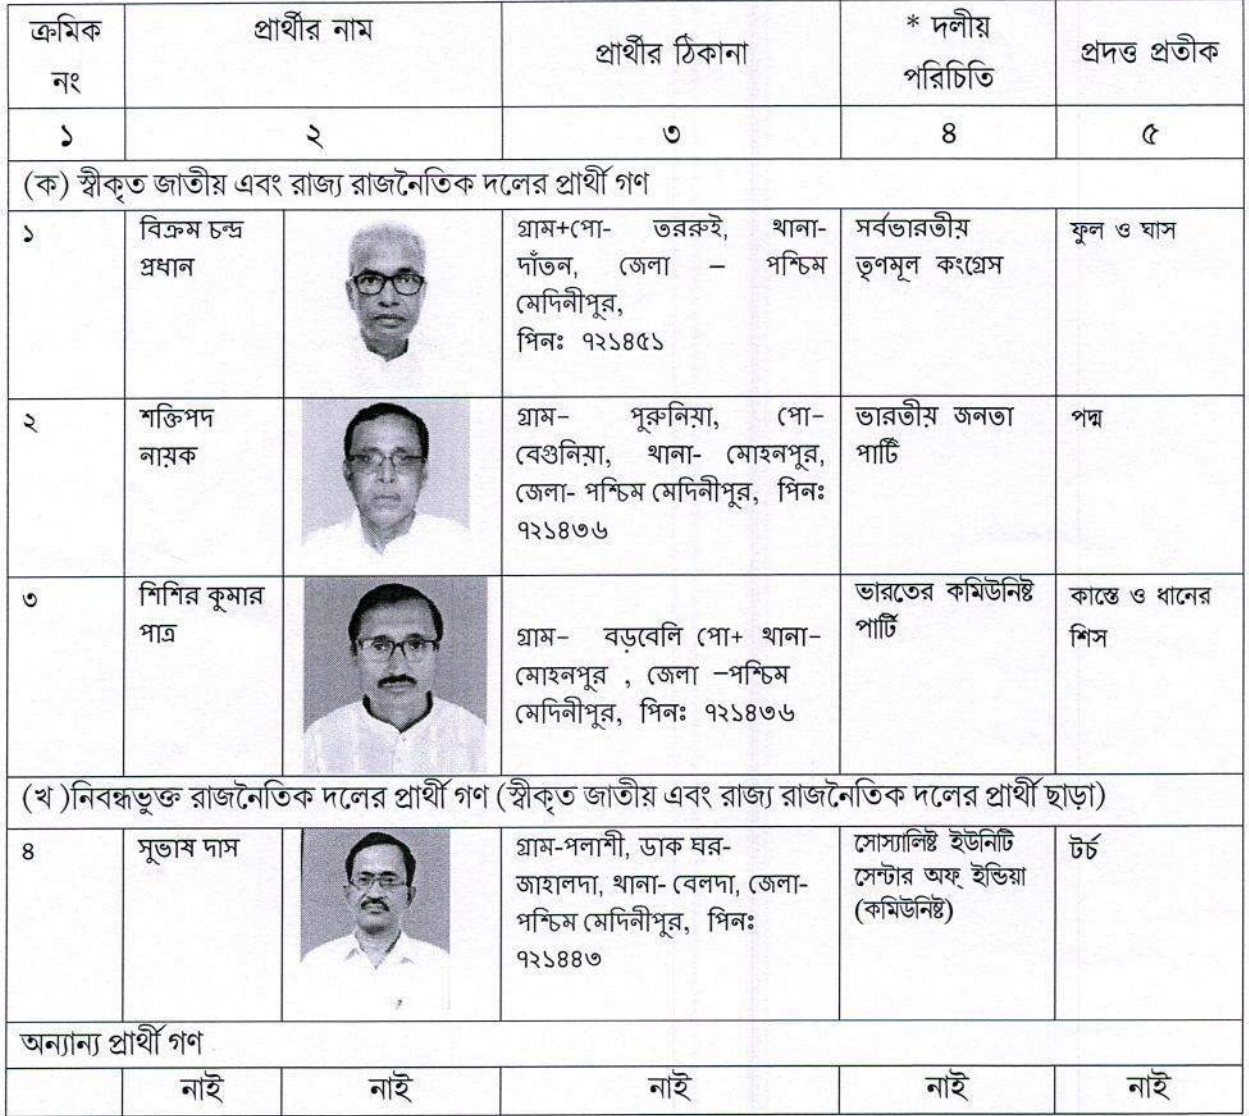 ক্রমিক নং
প্রার্থীর নাম
প্রার্থীর ঠিকানা
* দলীয় পরিচিতি
প্রদত্ত প্রতীক
১ ২ ৩ ৪ ৫
(ক) স্বীকৃত জাতীয় এবং রাজ্য রাজনৈতিক দলের প্রার্থী গণ
১
বিক্রম চন্দ্র
প্রধান
গ্রাম+পো- তররুই, থানা-
দাঁতন, জেলা – পশ্চিম
মেদিনীপুর,
পিনঃ ৭২১৪৫১
সর্বভারতীয়
তৃণমূল কংগ্রেস
ফুল ও ঘাস
২
শক্তিপদ
নায়ক
গ্রাম– পুরুনিয়া, পো–
বেগুনিয়া, থানা- মোহনপুর,
জেলা- পশ্চিম মেদিনীপুর, পিনঃ
৭২১৪৩৬
ভারতীয় জনতা
পার্টি
পদ্ম
৩
শিশির কুমার
পাত্র
গ্রাম– বড়বেলি পো+ থানা–
মোহনপুর , জেলা –পশ্চিম
মেদিনীপুর, পিনঃ ৭২১৪৩৬
ভারতের কমিউনিষ্ট
পার্টি
কাস্তে ও ধানের
শিস
(খ )নিবন্ধভুক্ত রাজনৈতিক দলের প্রার্থী গণ (স্বীকৃত জাতীয় এবং রাজ্য রাজনৈতিক দলের প্রার্থী ছাড়া)
৪
সুভাষ দাস
গ্রাম-পলাশী, ডাক ঘর-
জাহালদা, থানা- বেলদা, জেলা-
পশ্চিম মেদিনীপুর, পিনঃ
৭২১৪৪৩
সোস্যালিষ্ট ইউনিটি
সেন্টার অফ্ ইন্ডিয়া
(কমিউনিষ্ট)
টর্চ
অন্যান্য প্রার্থী গণ
নাই নাই নাই নাই নাই